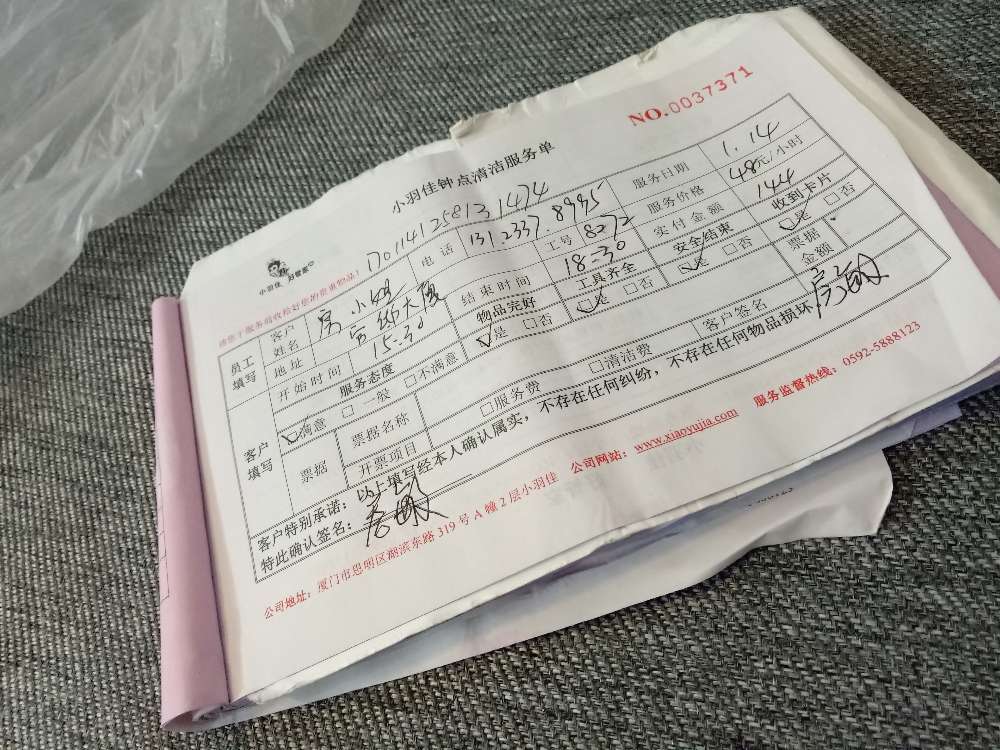 NO.0037371
小羽佳钟点清洁服务单
小羽佳 好管家
1701141258131474
请您于服务前收拾好您的贵重物品!
员工填写 客户姓名 房小姐 电话 131.2337.8995 服务日期 1.14
地址 大厦 工号 8272 服务价格 48元/小时
开始时间 15-30 结束时间 18-30 实付金额 144
客户填写 服务态度 物品完好 工具齐全 安全结束 收到卡片
☑满意 □一般 □不满意 ☑是 □否 ☑是 □否 ☑是 □否 ☑是 □否
票据 票据名称 票据金额
开票项目 □服务费 □清洁费 客户签名
客户特别承诺:以上填写经本人确认属实,不存在任何纠纷,不存在任何物品损坏
特此确认签名:
公司地址:厦门市思明区湖滨东路319号A幢2层小羽佳 公司网站:www.xiaoyujia.com 服务监督热线:0592-5888123